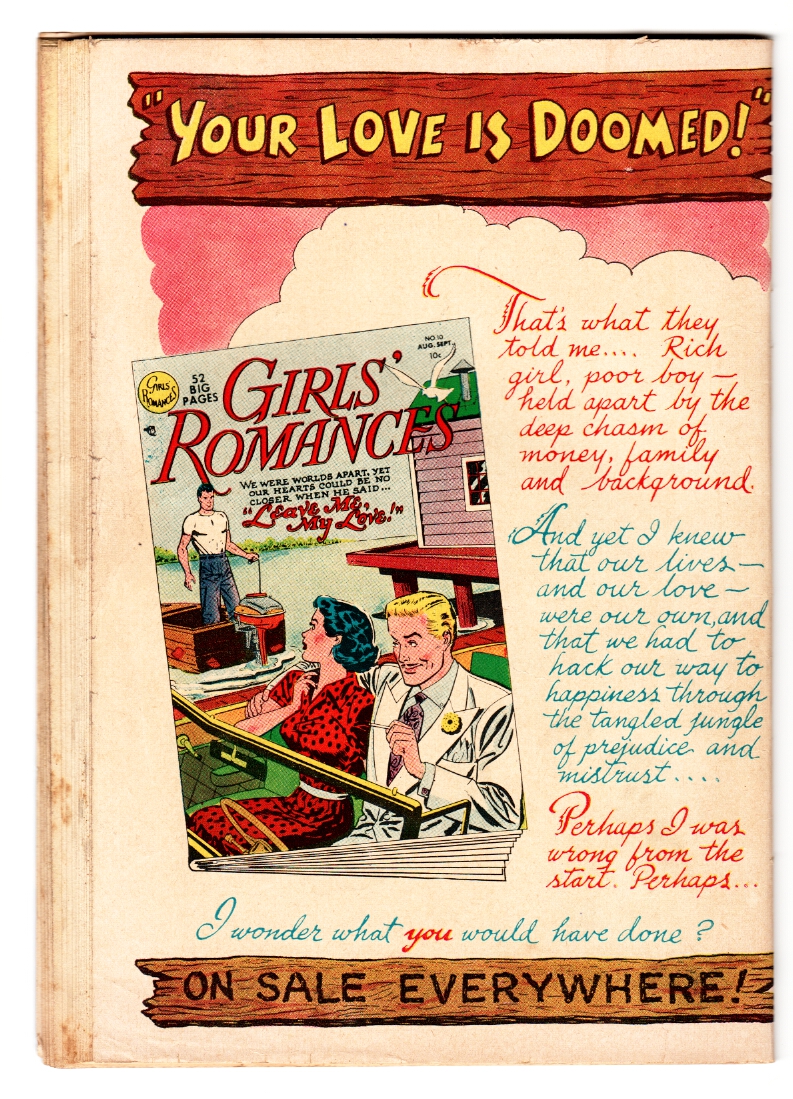 "YOUR LOVE IS DOOMED!"
That's what they
told me.... Rich
girl, poor boy —
held apart by the
deep chasm of
money, family
and background.
And yet I knew
that our lives —
and our love —
were our own, and
that we had to
hack our way to
happiness through
the tangled jungle
of prejudice and
mistrust....
Perhaps I was
wrong from the
start. Perhaps...
GIRLS'
ROMANCES
52
BIG
PAGES
NO.10
AUG. SEPT.
10¢
GIRLS'
ROMANCES
WE WERE WORLDS APART, YET
OUR HEARTS COULD BE NO
CLOSER WHEN HE SAID...
"Leave Me,
My Love!"
I wonder what you would have done?
ON SALE EVERYWHERE!